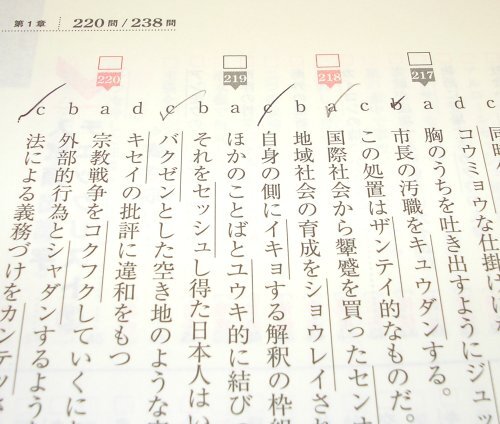 第1章 220問/238問
c 同時
d コウミョウな仕掛けに
217 a 胸のうちを吐き出すようにジュッ
b 市長の汚職をキュウダンする。
c この処置はザンテイ的なものだ。
218 a 国際社会から顰蹙を買ったセン
b 地域社会の育成をショウレイさ
c 自身の側にイキョする解釈の枠
219 a ほかのことばとユウキ的に結び
b それをセッシュし得た日本人はい
c バクゼンとした空き地のような
d キセイの批評に違和をもつ
220 a 宗教戦争をコクフクしていくに
b 外部的行為とシャダンするよう
c 法による義務づけをカンテツ